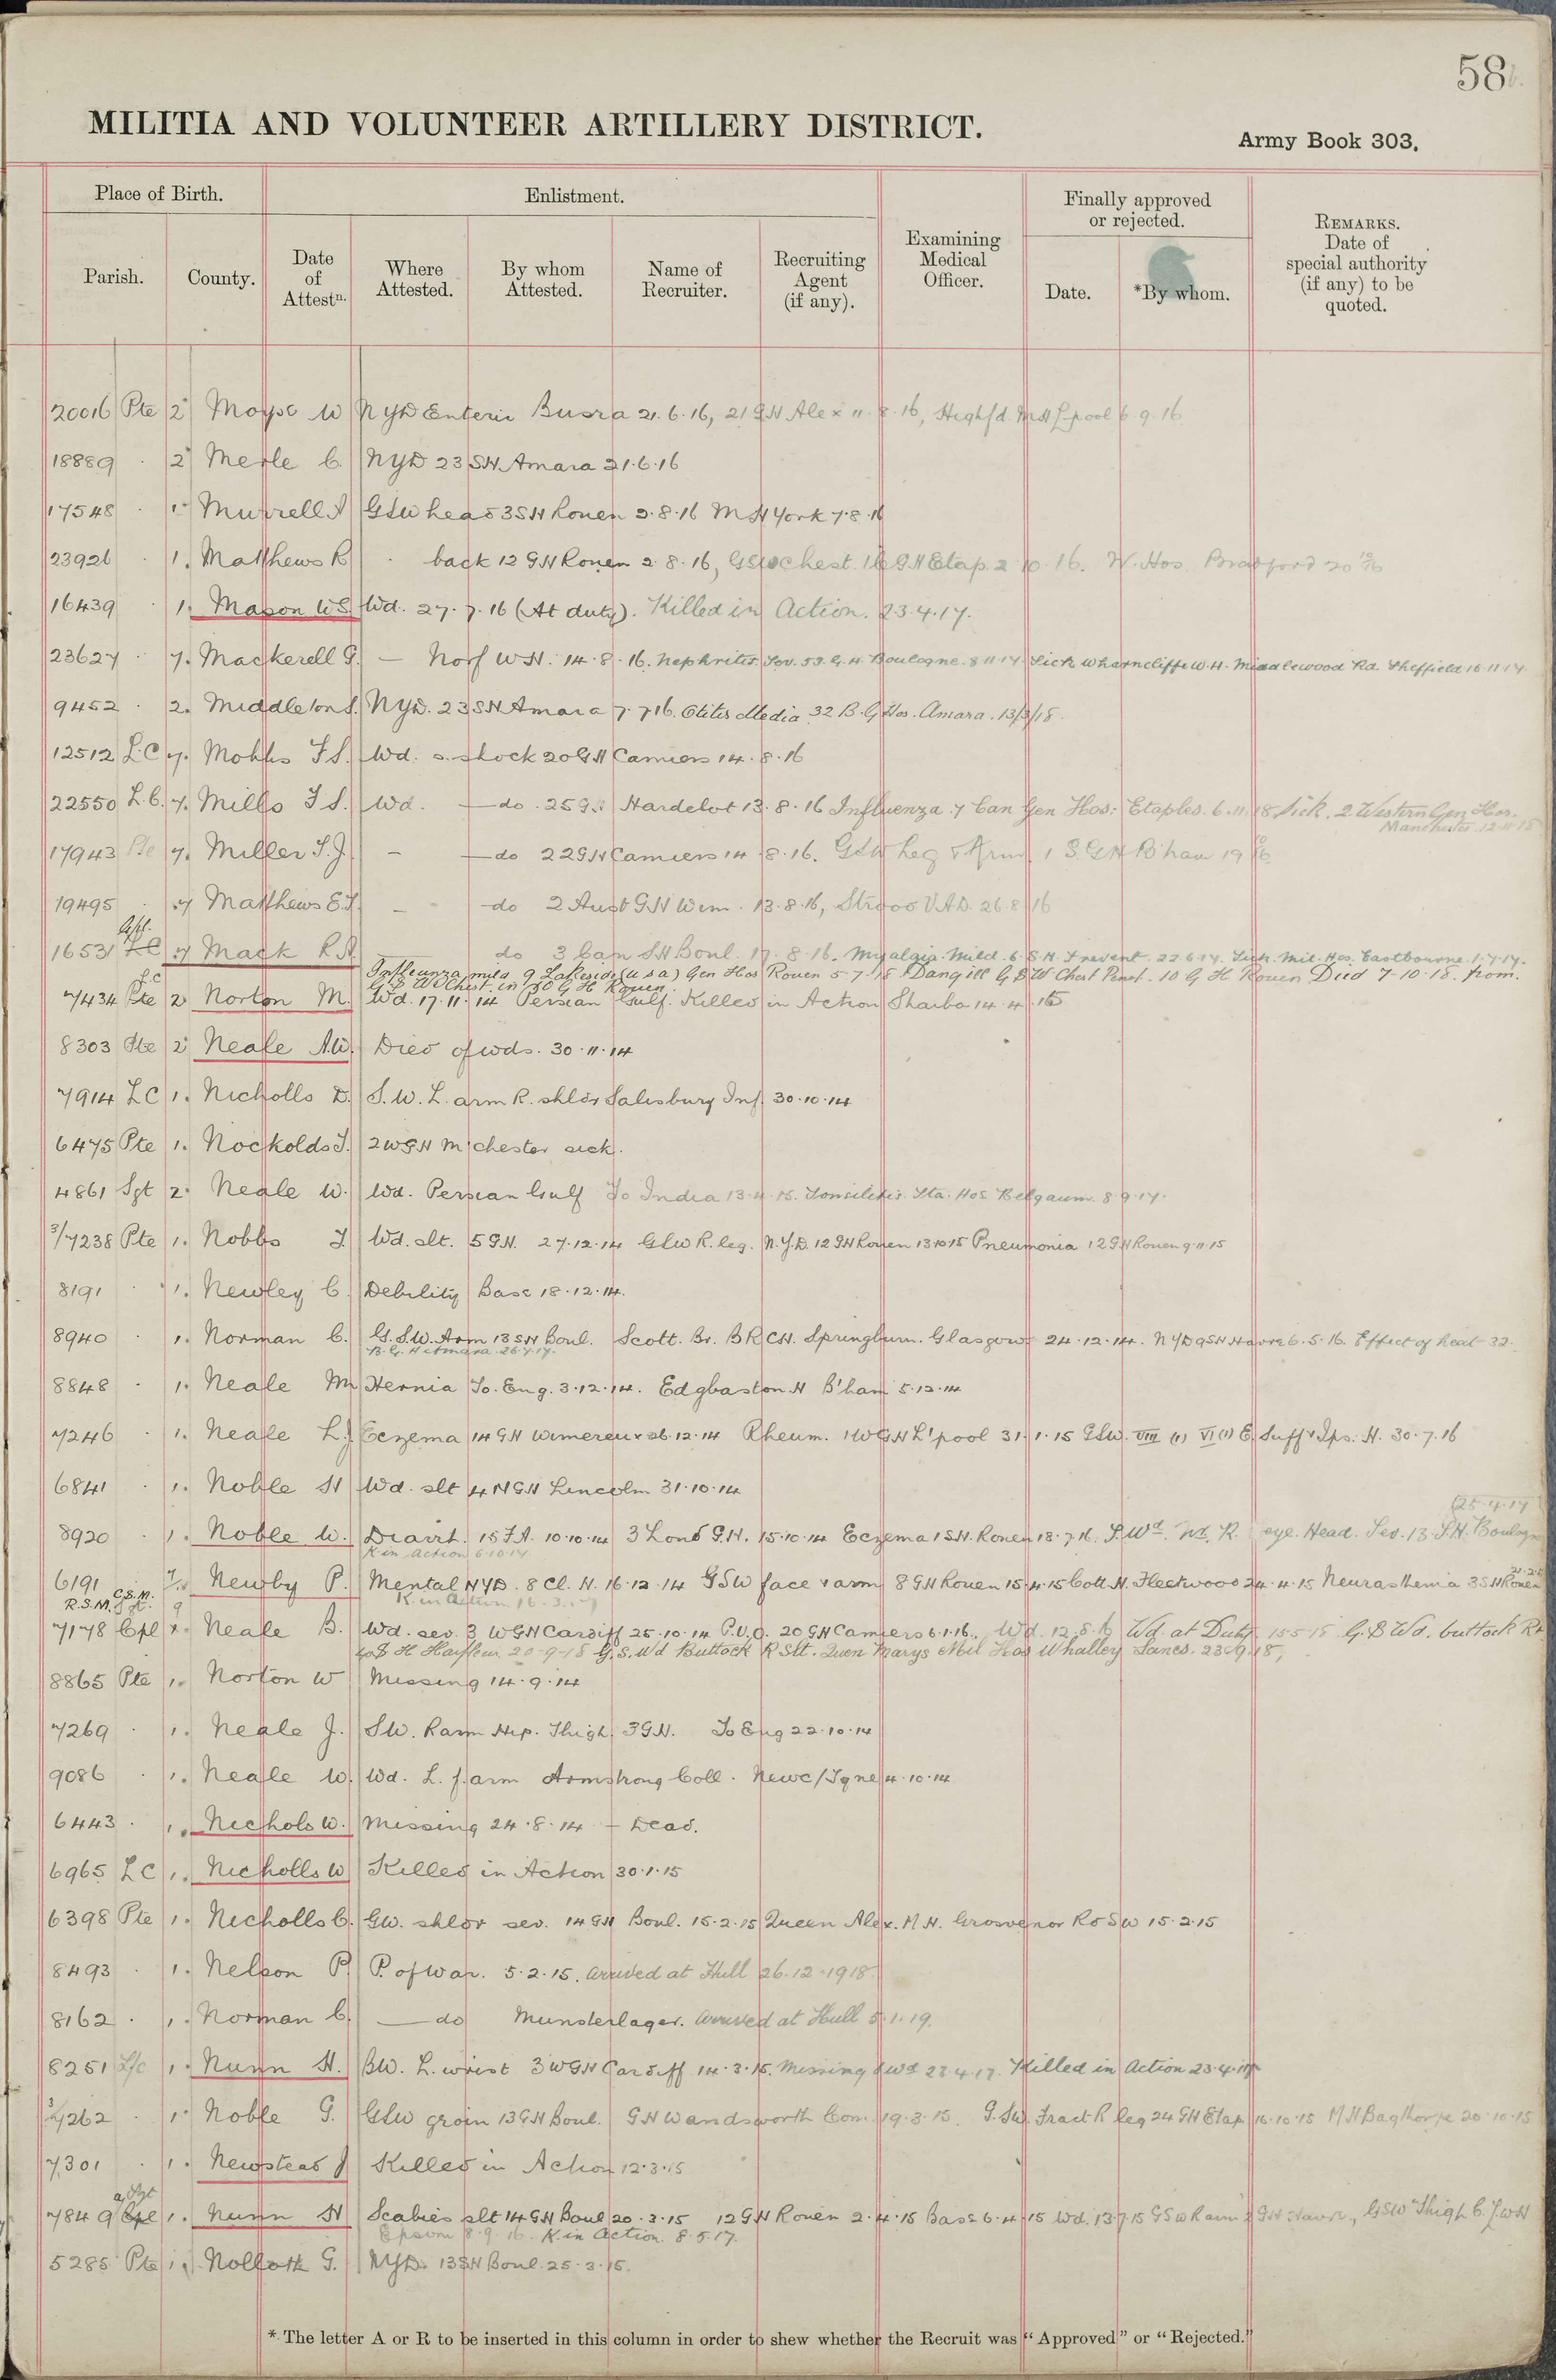 58
MILITIA AND VOLUNTEER ARTILLERY DISTRICT.
Army Book 303.
Place of Birth.
Enlistment.
Finally approved or rejected.
Parish.
County.
Date of Attestn.
Where Attested.
By whom Attested.
Name of Recruiter.
Recruiting Agent (if any).
Examining Medical Officer.
Date.
*By whom.
REMARKS. Date of special authority (if any) to be quoted.
20016 Pte 2 Moyse W NYD Enteric Busra 21.6.16, 21 GH Alex 11.8.16, Highfd. MH L'pool 6.9.16
18889 . 2 Merle C. NYD 23 SH Amara 21.6.16
17548 . 1. Murrell A GSW head 3 SH Rouen 3.8.16 MH York 7.8.16
23926 . 1. Matthews R . back 12 GH Rouen 2.8.16, GSW chest. 16 GH Etap. 2.10.16. W. Hos. Bradford 20
16439 . 1. Mason WS Wd. 27.7.16 (At duty). Killed in Action. 23.4.17.
23627 . 7. Mackerell G. — Norf WH. 14.8.16. Nephritis Sev. 53. G.H. Boulogne. 8 11 17. Sick Wharncliffe W.H. Middlewood Rd. Sheffield 16.11.17
9452 . 2. Middleton S. NYD. 23 SH Amara 7.7.16. Otitis Media 32 B.G. Hos. Amara. 13/3/18.
12512 LC 7. Mobbs FS. Wd. s. shock 20 GH Camiers 14.8.16
22550 L.C. 7. Mills FS. Wd. — do. 25 GH Hardelot 13.8.16 Influenza 7 Can Gen Hos: Etaples. 6.11.18 Sick. 2 Western Gen Hos.
Manchester. 12.11.18
17943 Pte 7. Miller S.J. - — do 22 GH Camiers 14.8.16. GSW Leg & Arm 1 S.GH B'ham 19
19495 . 7 Matthews E.J. - do 2 Aust GH Wim. 13.8.16, VAD. 26.8.16
16531 LC 7 Mack R.A. do 3 Can SH Boul. 17.8.16. Myalgia Mild. 6 S.H. Frevent. 22.6.17. Sick. Mil. Hos. Eastbourne. 1.7.17.
Influenza mild 9 Lakeside (USA) Gen Hos Rouen 5-7-18 Dang ill G S W Chest Penet. 10 G H Rouen Died 7-10-18. from.
G S W Chest. in 10 G H Rouen
7434 Pte 2 Norton M. Wd. 17.11.14 Persian Gulf. Killed in Action Shaiba 14.4.15
8303 Pte 2 Neale A.W. Died of wds. 30.11.14
7914 LC 1. Nicholls D. S.W. L. arm R. shldr Salisbury Inf. 30.10.14
6475 Pte 1. Nockolds J. 2 WGH M'chester sick.
4861 Sgt 2. Neale W. Wd. Persian Gulf To India 13.4.15. Tonsilitis. Sta. Hos. Belgaum. 8.9.17.
3/7238 Pte 1. Nobbs J. Wd. slt. 5 GH. 27.12.14 GSW R. leg. N.Y.D. 12 GH Rouen 13.10.15 Pneumonia 12 GH Rouen 9.11.15
8191 . 1. Newley C. Debility Base 18.12.14.
8940 . 1. Norman C. G.S.W. Arm 13 SH Boul. Scott. Br. BRCH. Springburn. Glasgow 24.12.14. NYD 9 SH Havre 6.5.16. Effect of heat 32.
B.G.H. Amara. 26.7.17.
8848 . 1. Neale M Hernia To. Eng. 3.12.14. Edgbaston H B'ham 5.12.14
7246 . 1. Neale L.J. Eczema 14 GH Wimereux 26.12.14 Rheum. 1 WGH L'pool 31.1.15 GSW. VIII (1) VI (1) E. Suff & Ips. H. 30.7.16
6841 . 1. Noble H Wd. slt 4 NGH Lincoln 31.10.14
(25.4.17)
8920 . 1. Noble W. Diarrh. 15 F.A. 10.10.14 3 Lond G.H. 15.10.14 Eczema 1 SH. Rouen 18.7.16. S.Wd. R. eye. Head. Sev. 13. SH. Boulogne
K in action 6.10.17.
6191 Newby P. Mental NYD. 8 Cl. H. 16.12.14 GSW face & arm 8 GH Rouen 15.4.15 Coll H. Fleetwood 24.4.15 Neurasthenia 3 SH Rouen
C.S.M.
R.S.M.
K in action
7178 Cpl Neale B. Wd. sev. 3 WGH Cardiff 25.10.14 P.U.O. 20 GH Camiers 6.1.16. Wd. 12.8.16 Wd. at Duty 15.5.18 G.S Wd. buttock Rt
H Harfleur. 20-9-18 G.S.Wd Buttock R Slt. Quen Marys Mil Hos Whalley Lancs. 23.9.18,
8865 Pte 1. Norton W Missing 14.9.14
7269 . 1. Neale J. SW. R arm Hip. Thigh. 3 GH. To Eng 22.10.14
9086 . 1. Neale W. Wd. L. f. arm Armstrong Coll. Newc/Tyne 4.10.14
6443 . 1. Nichols W. Missing 24.8.14 - Dead.
6965 LC 1. Nicholls W Killed in Action 30.1.15
6398 Pte 1. Nicholls C. GW. shldr sev. 14 GH Boul. 15.2.15 Queen Alex. MH. Grosvenor Rd SW 15.2.15
8493 . 1. Nelson P. P. of War. 5.2.15. Arrived at Hull 26.12.1918.
8162 . 1. Norman C. — do Munsterlager. Arrived at Hull 5.1.19.
8251 L/c 1. Nunn H. BW. L. wrist 3 WGH Cardiff 14.3.15. Missing & wd 23.4.17. Killed in Action 23.4.17
3/7262 . 1. Noble G. GSW groin 13 GH Boul. GH Wandsworth Com. 19.3.15. G.SW. Fract R leg 24 GH Etap 16.10.15 MH Bagthorpe 20.10.15
7301 . 1. Newstead J Killed in Action 12.3.15
a Sgt
7849 Cpl 1. Nunn H Scabies slt 14 GH Boul 20.3.15 12 GH Rouen 2.4.15 Base 6.4.15 Wd. 13.7.15 GSW R arm 2 GH Havre, GSW Thigh
Epsom 8.9.16. K. in Action. 8.5.17.
5285 Pte 1. Nolloth G. NYD. 13 SH Boul. 25.3.15.
* The letter A or R to be inserted in this column in order to shew whether the Recruit was "Approved" or "Rejected."